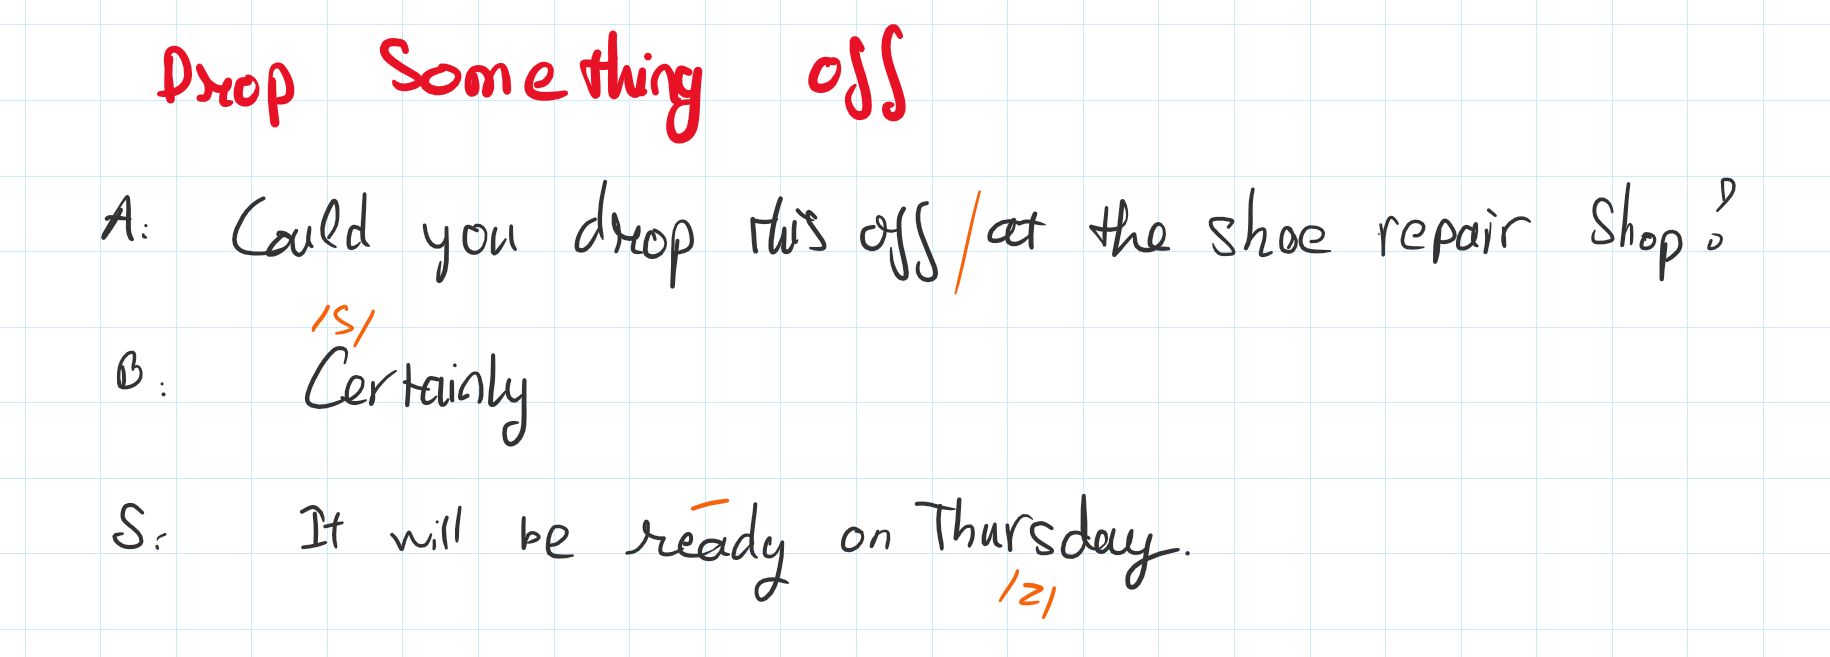 Drop Something off
A: Could you drop this off / at the shoe repair shop?
/s/
B: Certainly
S: It will be ready on Thursday.
/z/